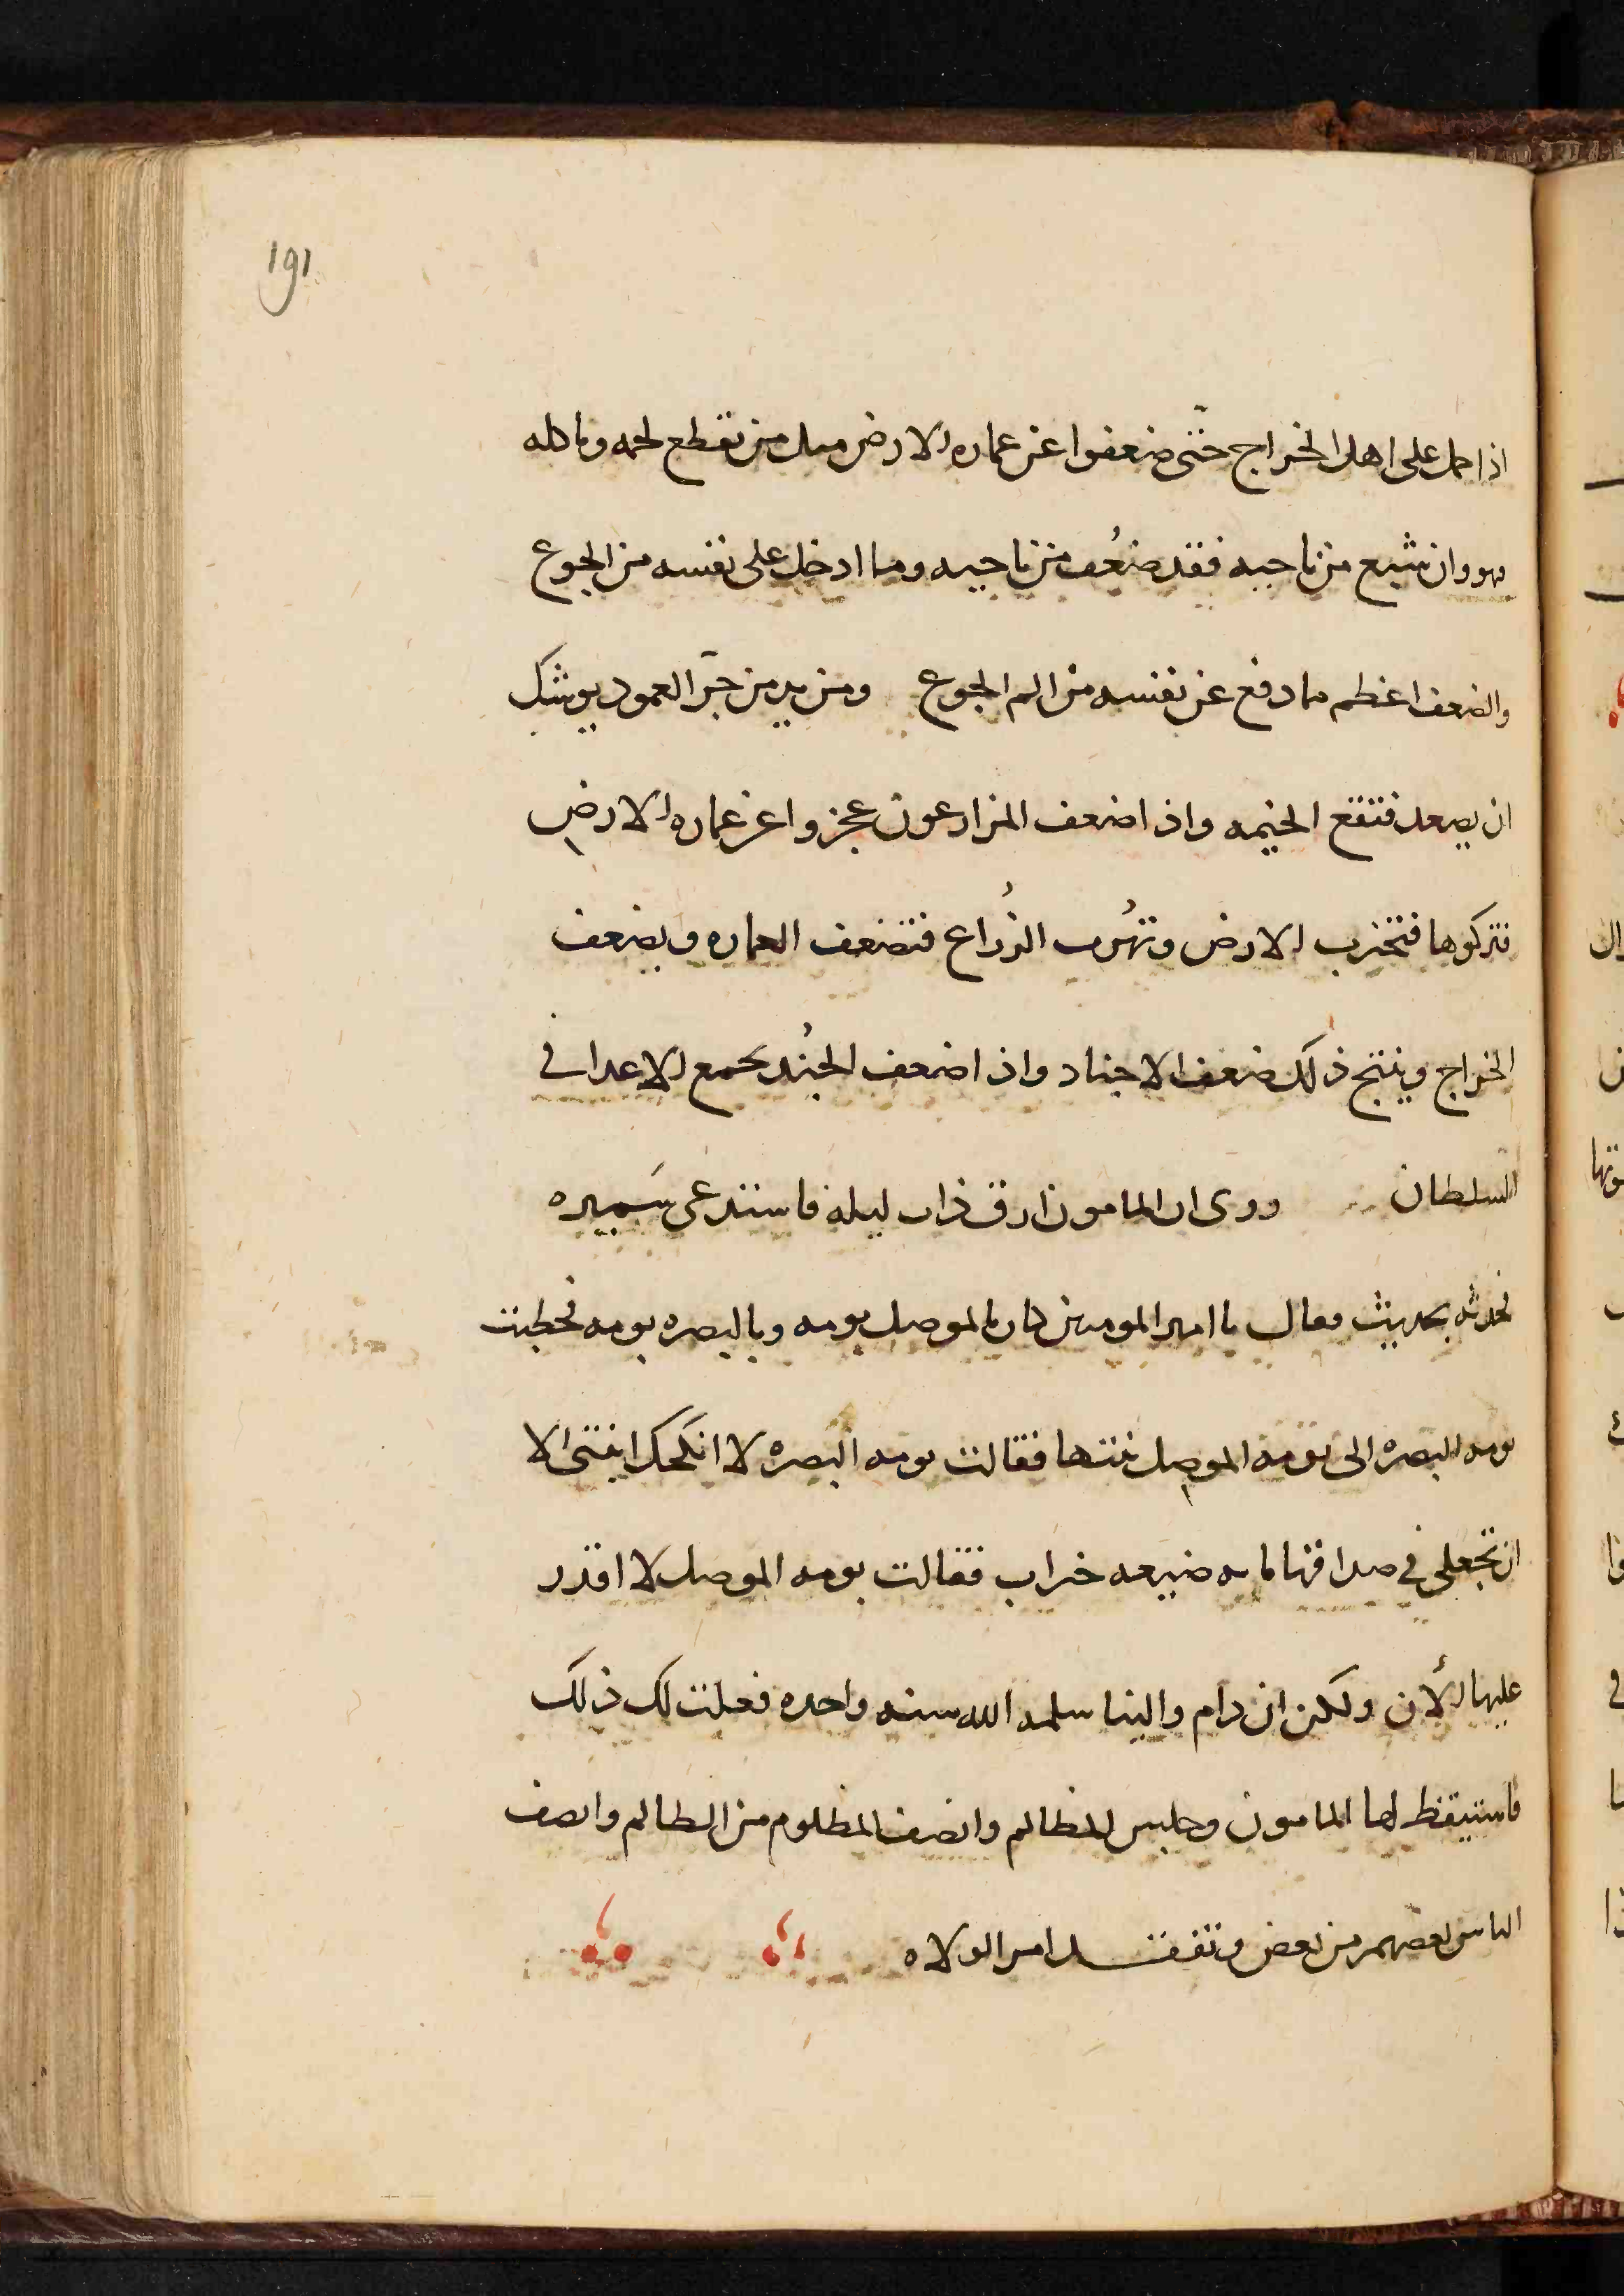 191
اذا حمل على اهل الخراج حتى ضعفوا عن عماره الارض مثل من يقطع لحمه وياكله
فهو وان شبع من ناحيه فقد ضعُف من ناحيه وما ادخل على نفسه من الجوع
والضعف اعظم مما دفع عن نفسه من الم الجوع ومن
ان يصعد فتقع الخيمه واذا ضعف المزارعون عجزوا عن عماره الارض
فتركوها فتخرب الارض وتهرُب الزُراع فتضعف العماره ويضعف
الخراج وينتج ذلك ضعف الاجناد واذا ضعف الجُند طمع الاعدا فى
السلطان وروى ان المامون ارق ذات ليله فاستدعى سَميره
فحدثه بحديث فقال يا امير المومنين كان بالموصل بومه وبالبصره بومه فخطبت
بومه البصره الى بومه الموصل بنتها فقالت بومه البصره لا انكحك ابنتى الا
ان تجعلى فى صداقها مايه ضيعه خراب فقالت بومه الموصل لا اقدر
عليها الأن ولكن ان دام والينا سلمه الله سنه واحده فعلت لك ذلك
فاستيقظ لها المامون وجلس للمظالم وانصف المظلوم من الظالم وانصف
الناس بعضهم من بعض وتفقد امر الولاه